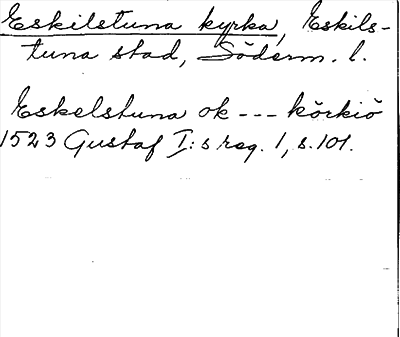 Eskilstuna kyrka, Eskils-
tuna stad, Söderm. l.
Eskelstuna ok --- körkiö
1523 Gustaf I:s reg. 1, s. 101.